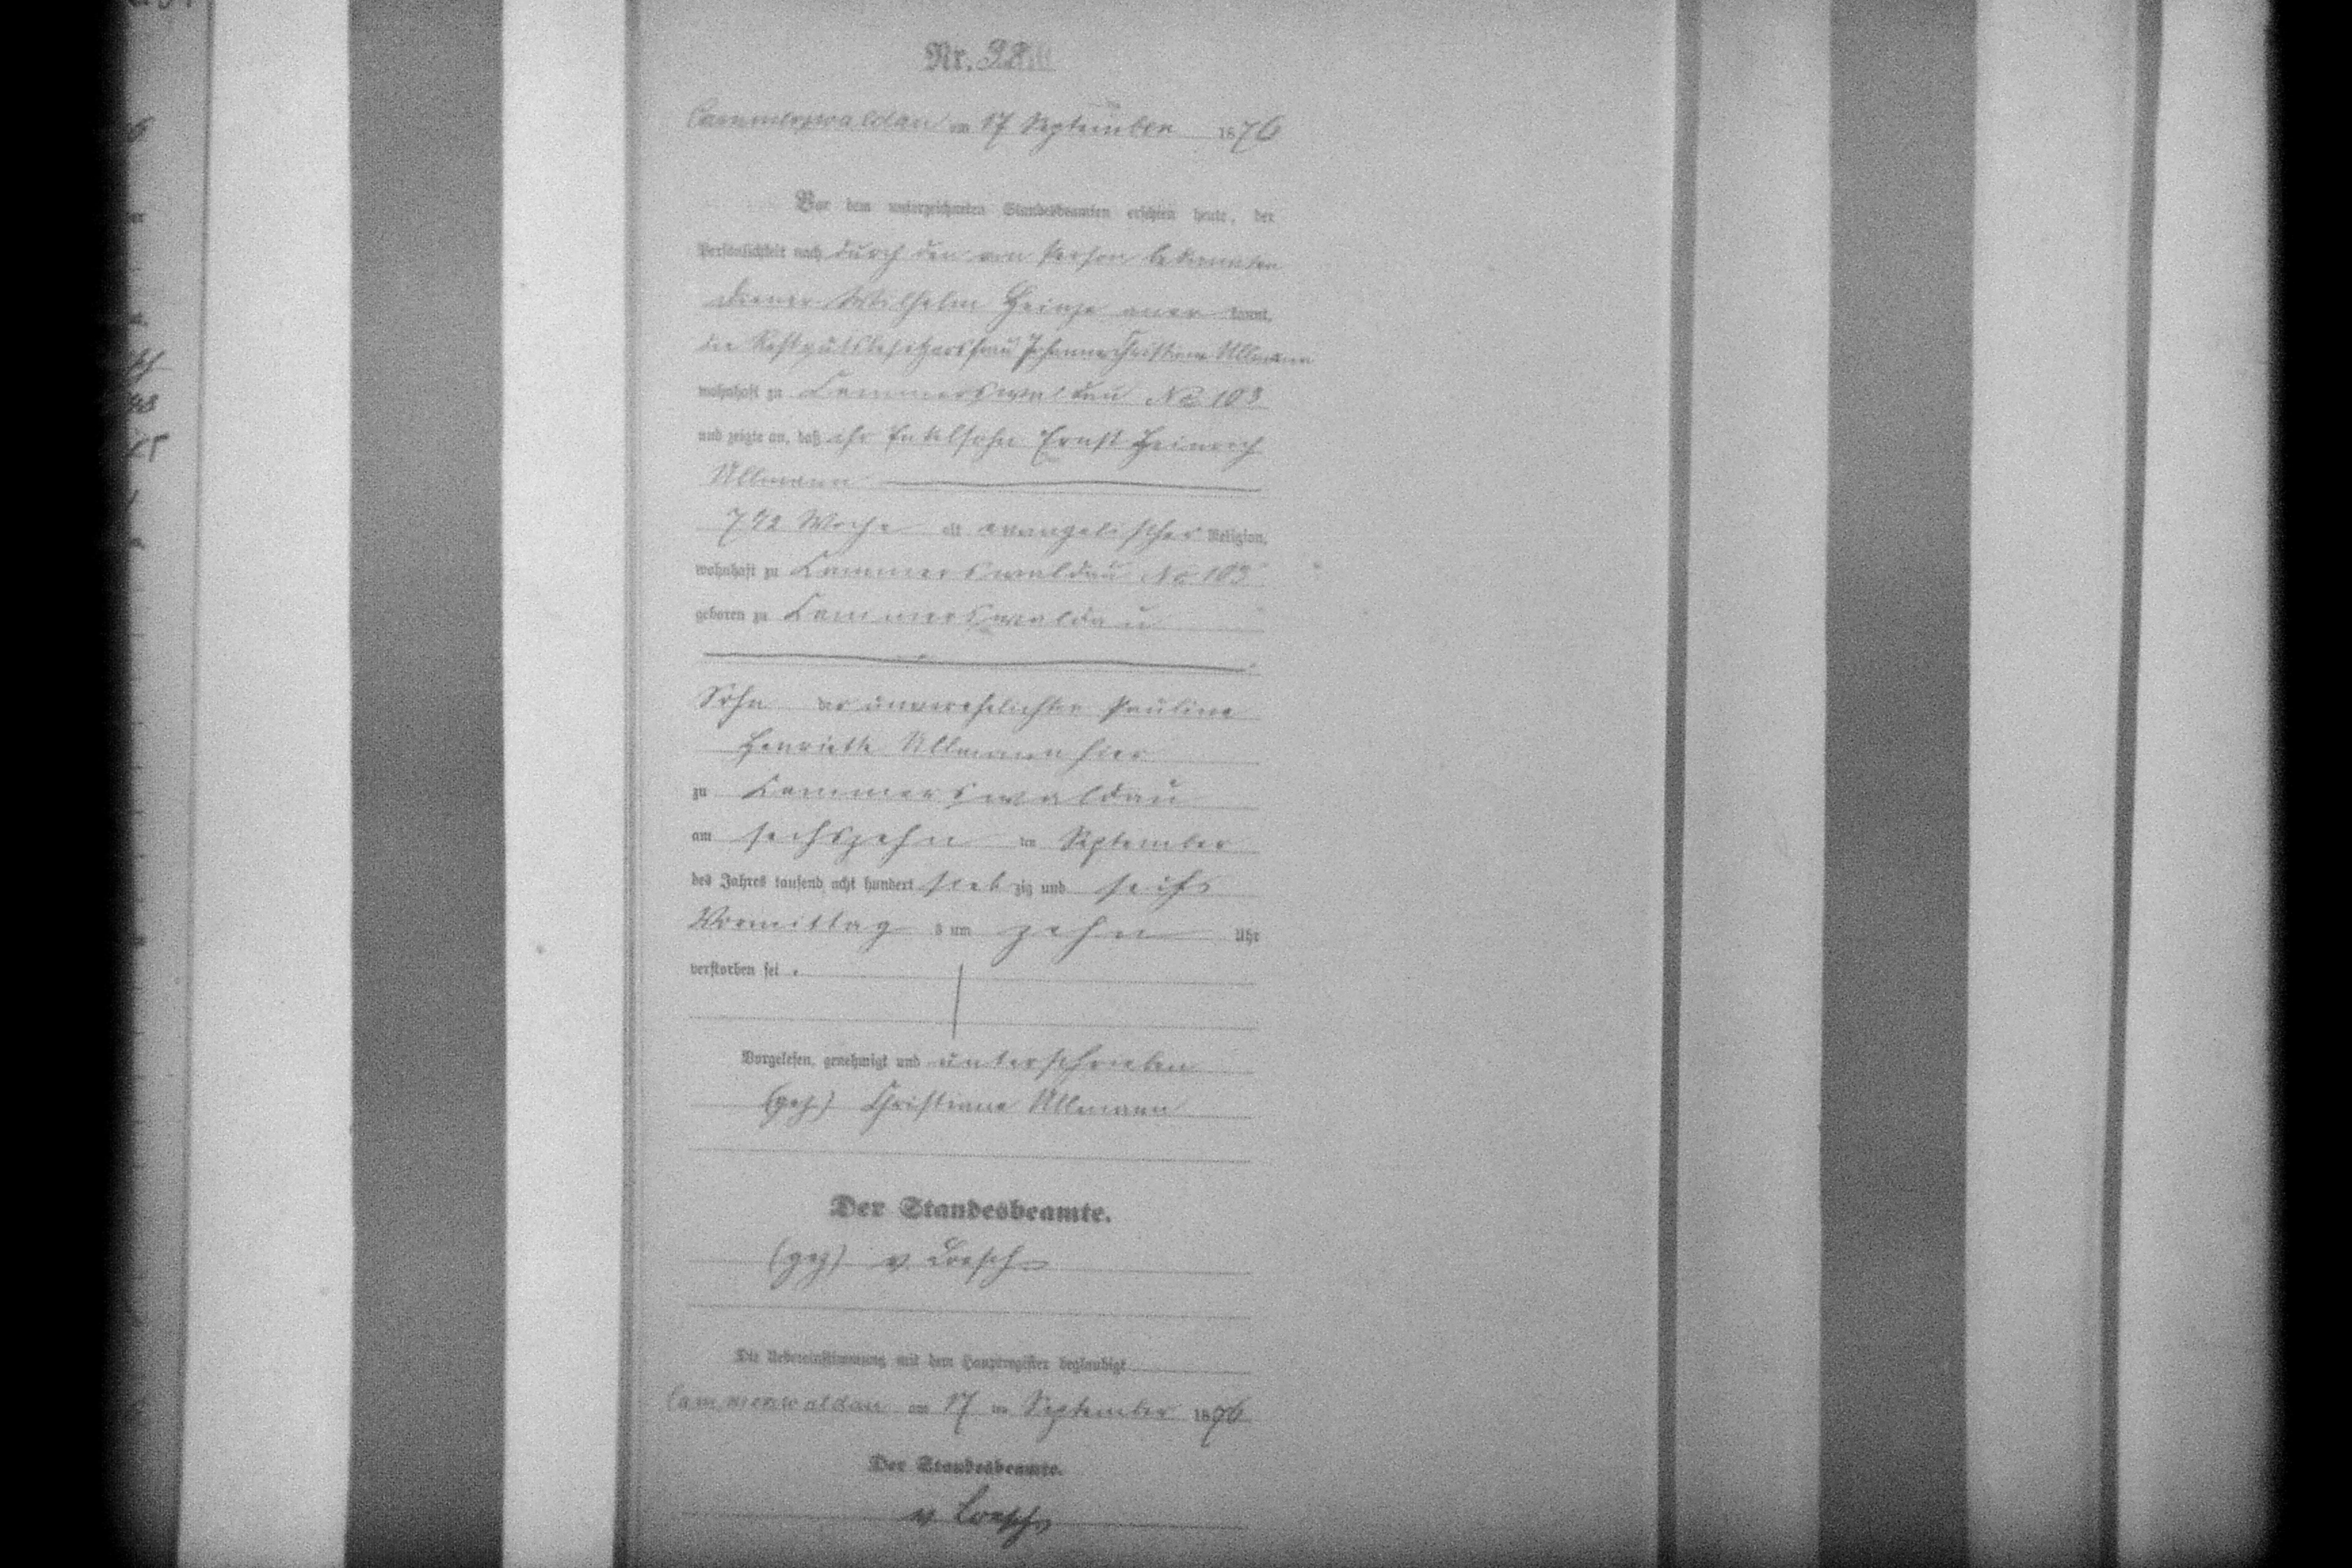 Nr. 38
Cammerswaldau am 17 September 1876
Vor dem unterzeichneten Standesbeamten erschien heute, der
Persönlichkeit nach durch den von Person bekannten
Diener Wilhelm Heinze aner kannt,
die Restgutsbesitzersfrau Johanne Christiane Ullmann
wohnhaft zu Cammerswaldau No 103
und zeigte an, daß ihr Enkelsohn Ernst Heinrich
Ullmann
7 1/2 Woche alt evangelischer Religion,
wohnhaft zu Cammerswaldau No 103
geboren zu Cammerswaldau
Sohn der unverehelichten Pauline
Henriette Ullmann hier
zu Cammerswaldau
am sechszehn ten September
des Jahres tausend acht hundert sieb zig und sechs
Vormittag s um zehn Uhr
verstorben sei.
Vorgelesen, genehmigt und unterschrieben
(gez) Christiane Ullmann
Der Standesbeamte.
(gez) v Loesch
Die Uebereinstimmung mit dem Hauptregister beglaubigt
Cammerswaldau am 17 ten September 1876
Der Standesbeamte.
v Loesch